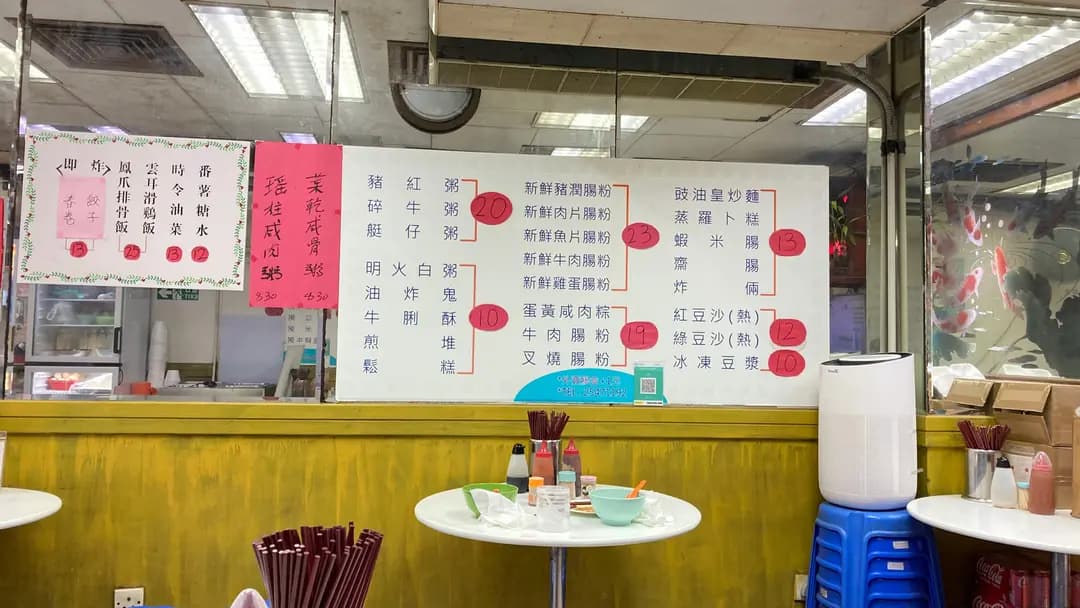 番薯糖水
12
時令油菜
13
雲耳滑鷄飯
鳳爪排骨飯
〈即炸〉
餃子
春卷
13
菜乾咸骨粥
$30
瑶柱咸肉粥
$30
豬紅粥
碎牛粥
艇仔粥
20
明火白粥
油炸鬼
牛脷酥
煎堆
鬆糕
10
新鮮豬潤腸粉
新鮮肉片腸粉
新鮮魚片腸粉
新鮮牛肉腸粉
新鮮雞蛋腸粉
23
蛋黃咸肉粽
牛肉腸粉
叉燒腸粉
19
豉油皇炒麵
蒸羅卜糕
蝦米腸
齋腸
炸兩
13
紅豆沙(熱)
綠豆沙(熱)
12
冰凍豆漿
10
Coca-Cola